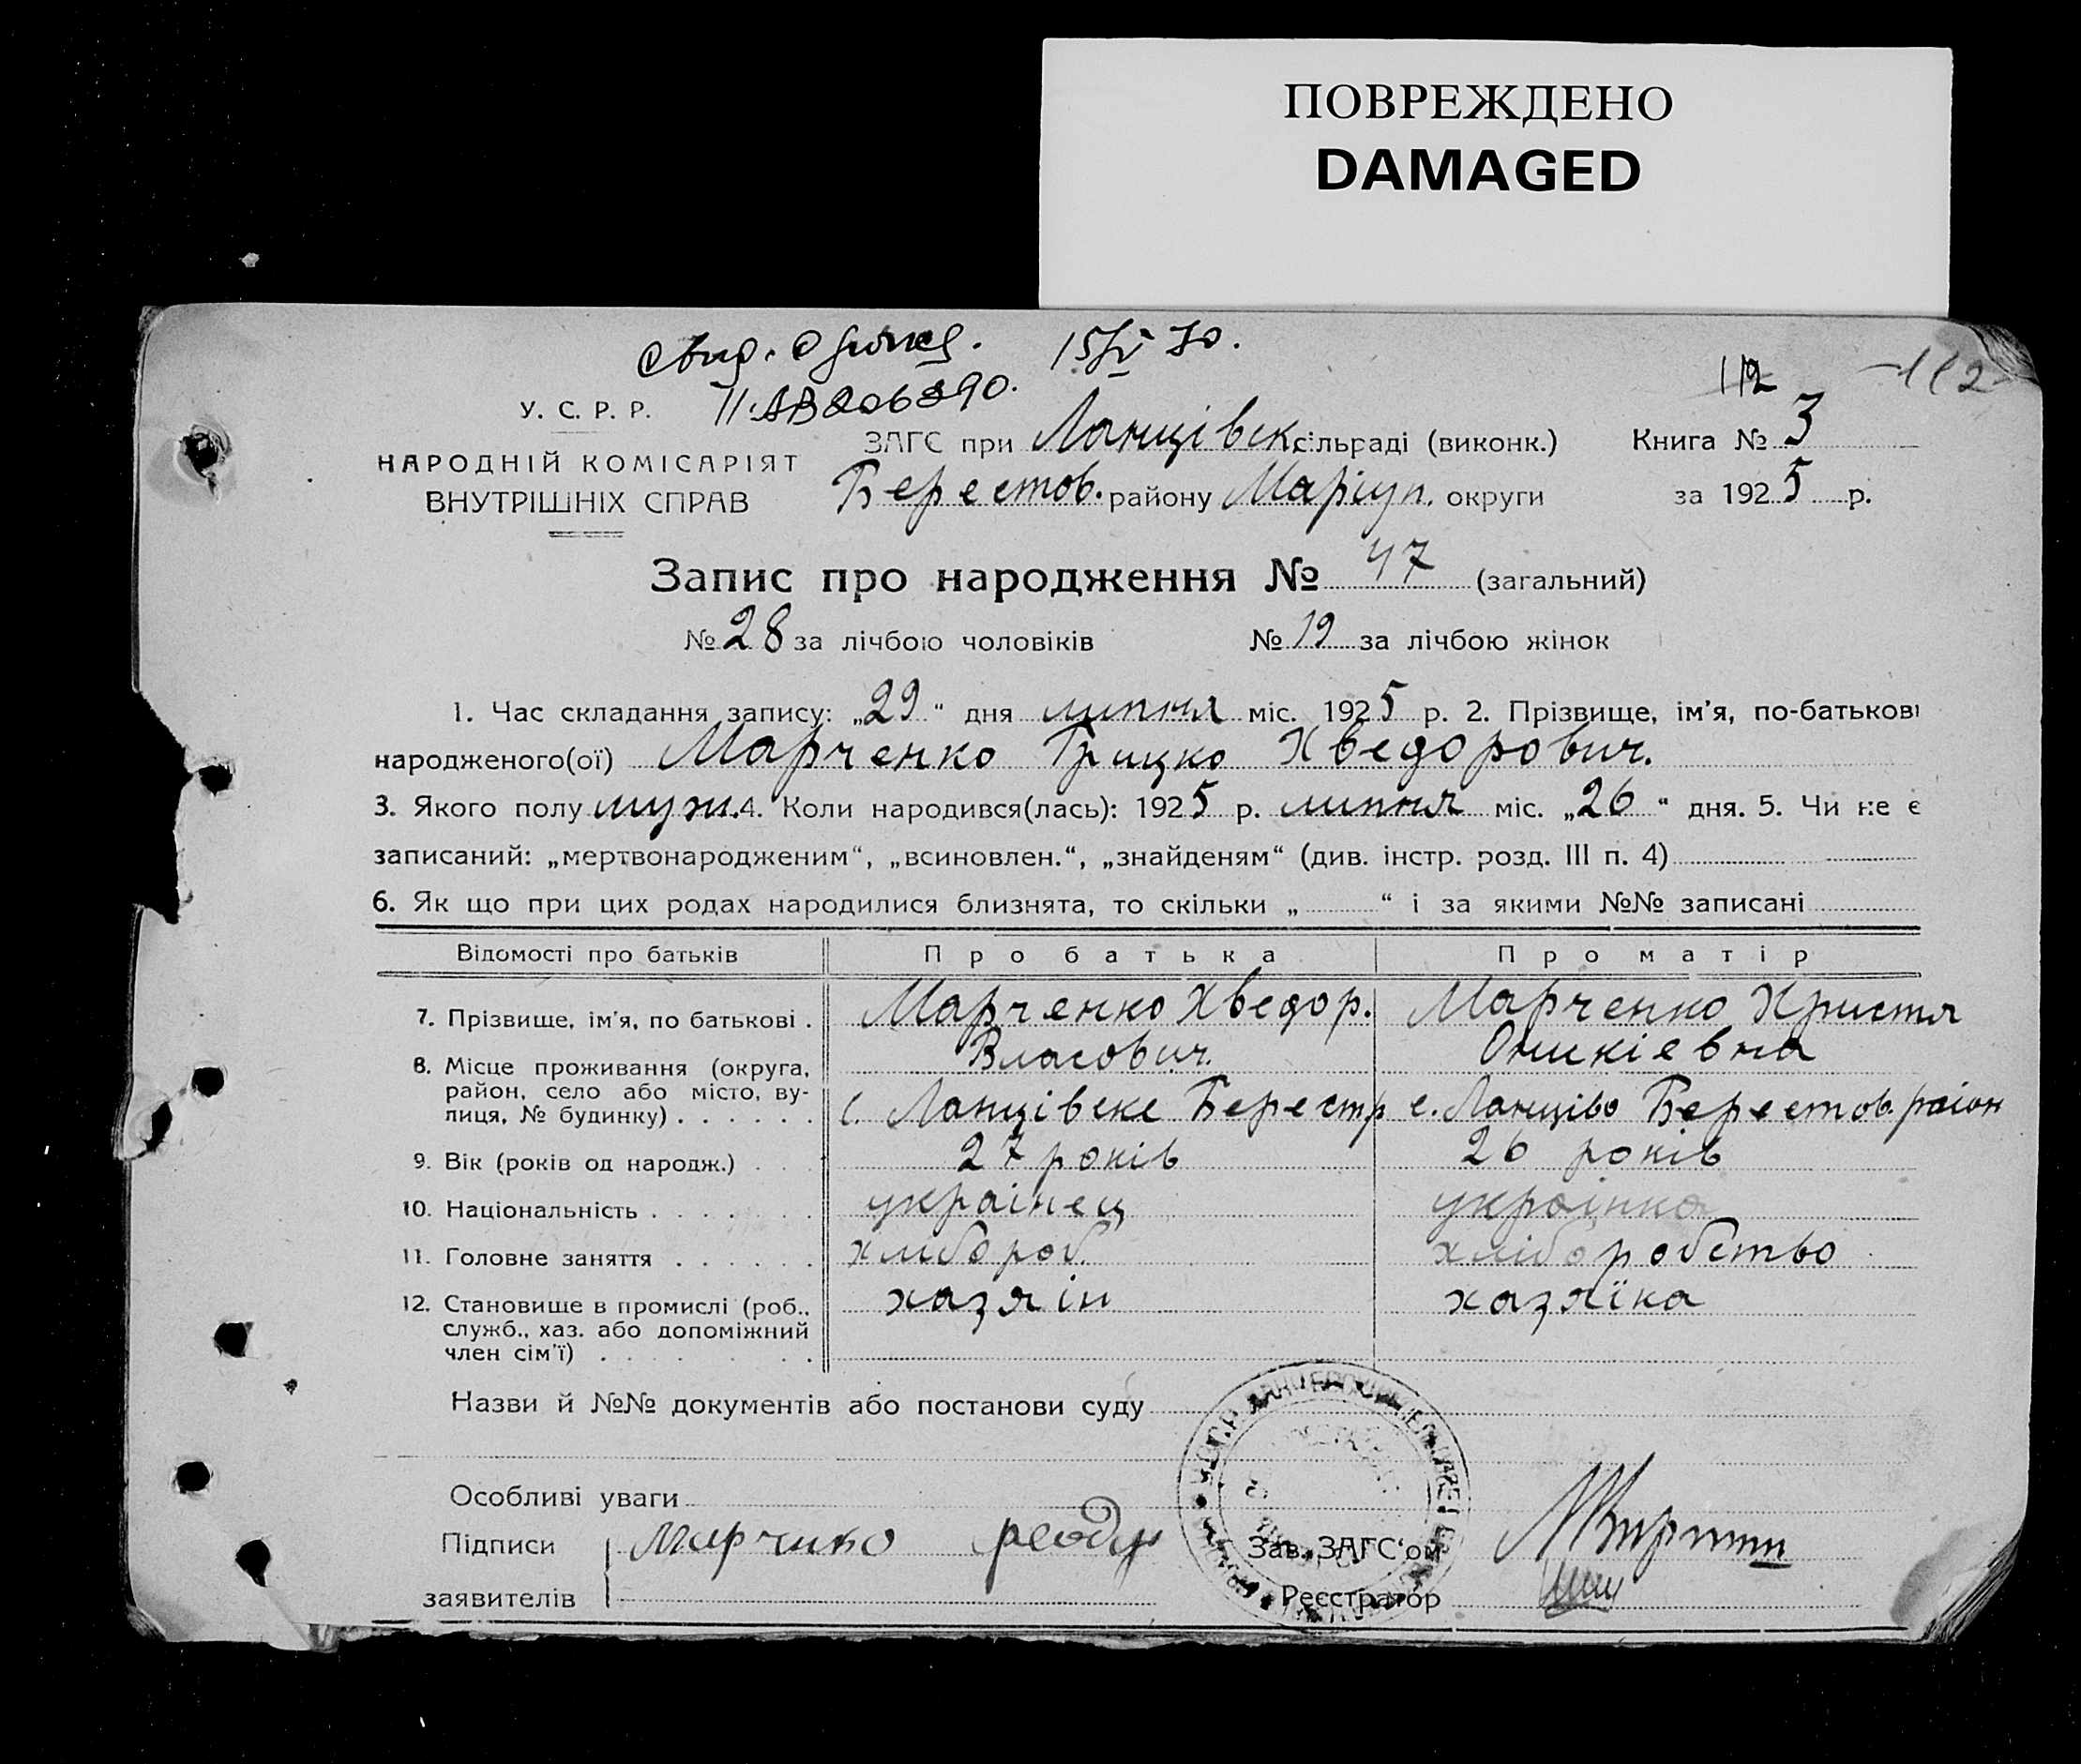 ПОВРЕЖДЕНО
DAMAGED
15/IV 70.
112 -112-
II-АВ 206890.
У. С. Р. Р.
ЗАГС при Ланцівск. сільраді (виконк.) Книга № 3
НАРОДНІЙ КОМІСАРІЯТ
ВНУТРІШНІХ СПРАВ
Берестов. району Маріуп. округи за 1925 р.
Запис про народження № 47 (загальний)
№ 28 за лічбою чоловіків № 19 за лічбою жінок
1. Час складання запису: „29“ дня липня міс. 1925 р. 2. Прізвище, ім’я, по-батькові
народженого(ої) Марченко Грицко Хведорович.
3. Якого полу муж. 4. Коли народився(лась): 1925 р. липня міс. „26“ дня. 5. Чи не є
записаний: „мертвонародженим“, „всиновлен.“, „знайденям“ (див. інстр. розд. III п. 4)
6. Як що при цих родах народилися близнята, то скільки „ “ і за якими №№ записані
Відомості про батьків Про батька Про матір
7. Прізвище, ім’я, по батькові . Марченко Хведор. Власович. Марченко Христя Оникіевна
8. Місце проживання (округа,
район, село або місто, ву-
лиця, № будинку) . . . . . . с. Ланцівске Берестр с. Ланціво Берестов. район
9. Вік (років од народж.) . . . 27 років 26 років
10. Національність . . . . . . . українец українка
11. Головне заняття . . . . . . хлібороб. хліборобство
12. Становище в промислі (роб.,
служб., хаз. або допоміжний
член сім’ї) . . . . . . . . хазяін хазяїка
Назви й №№ документів або постанови суду
Особливі уваги
Підписи Марченко Зав. ЗАГС‘ом
заявителів Реєстратор